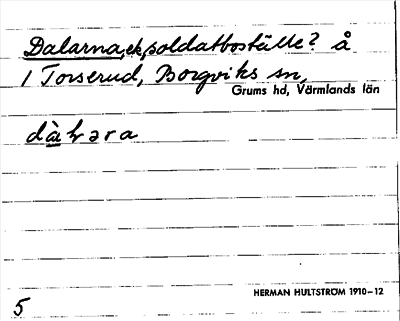 Dalarna, ek, soldatboställe? å
1 Torserud, Borgviks sn,
Grums hd, Värmlands län
HERMAN HULTSTRÖM 1910–12
5